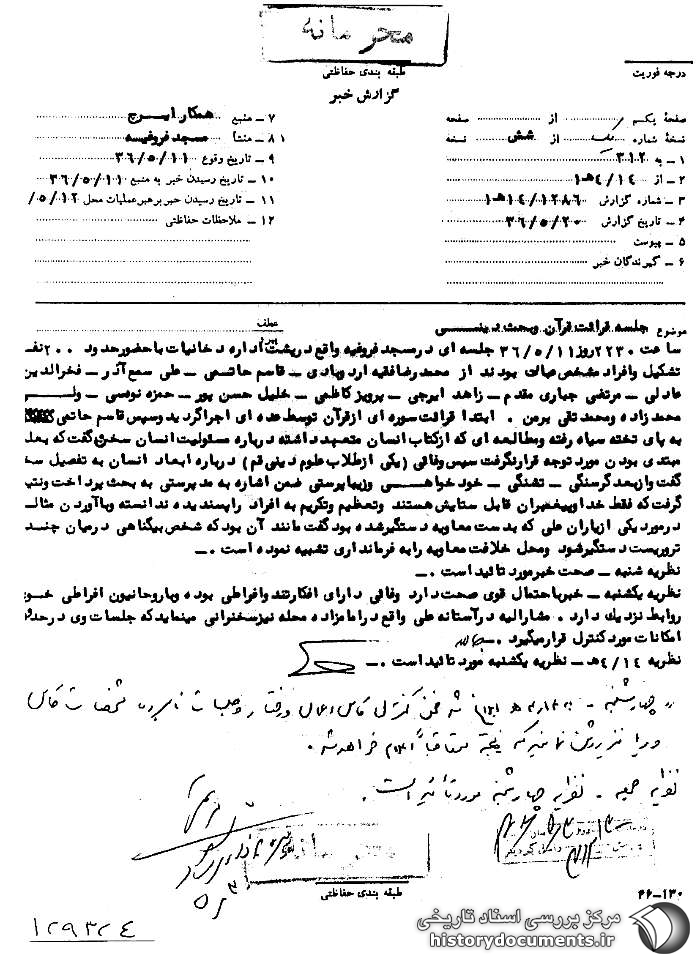 محرمانه
طبقه بندی حفاظتی
درجه فوریت
گزارش خبر
صفحهٔ یکم از صفحه
نسخهٔ شماره یک از شش نسخه
۱ - به ۳۱۲
۲ - از ۴/۱۴هـ۱
۳ - شماره گزارش ۱۴/۱۲۸۶هـ۱
۴ - تاریخ گزارش ۳۶/۵/۲۰
۵ - پیوست
۶ - گیرندگان خبر
۷ - منبع همکار ایرج
۸ - منشأ مسجد فروغیه
۹ - تاریخ وقوع ۳۶/۵/۱۱
۱۰ - تاریخ رسیدن خبر به منبع ۳۶/۵/۱۱
۱۱ - تاریخ رسیدن خبر برهبر عملیات محل ۵/۱۲/
۱۲ - ملاحظات حفاظتی
موضوع جلسه قرائت قرآن و بحث دینی
عطف
ساعت ۲۲۳۰ روز ۳۶/۵/۱۱ جلسه ای در مسجد فروغیه واقع در پشت اداره دخانیات با حضور حدود ۲۰۰ نفر
تشکیل و افراد مشخص عبارت بودند از محمدرضا فقیه اردوبادی - قاسم حاتمی - علی سمع آذر - فخرالدین
عادلی - مرتضی جباری مقدم - زاهد ایرجی - پرویز کاظمی - خلیل حسن پور - حمزه نویسی - ولی
محمدزاده و محمدتقی برمن . ابتدا قرائت سوره ای از قرآن توسط عده ای اجرا گردید و سپس قاسم حاتمی
به پای تخته سیاه رفته و مطالعه ای که از کتاب انسان متعهد داشته درباره مسئولیت انسان سخن گفت که بعلت
مبتدی بودن مورد توجه قرار نگرفت سپس وفائی (یکی از طلاب علوم دینی قم) درباره ابعاد انسان به تفصیل سخن
گفت و از بعد گرسنگی - تشنگی - خودخواهی و زیباپرستی ضمن اشاره به مدپرستی به بحث پرداخت و نتیجه
گرفت که فقط خدا و پیغمبران قابل ستایش هستند و تعظیم و تکریم به افراد را پسندیده ندانسته و با آوردن مثالی
در مورد یکی از یاران علی که بدست معاویه دستگیر شده بود گفت مانند آن بود که شخص بیگناهی در میان چند
تروریست دستگیر شود و محل خلافت معاویه را به فرمانداری تشبیه نموده است .-
نظریه شنبه - صحت خبر مورد تائید است .-
نظریه یکشنبه - خبر با احتمال قوی صحت دارد وفائی دارای افکار تند و افراطی بوده و با روحانیون افراطی خسو
روابط نزدیک دارد . مشارالیه در آستانه علی واقع در امامزاده محله نیز سخنرانی مینماید که جلسات وی در حدود
امکانات مورد کنترل قرار میگیرد .-
نظریه ۴/۱۴ هـ - نظریه یکشنبه مورد تائید است .-
نظریه جمعه - نظریه چهارشنبه مورد تائید است .
محرمانه
طبقه بندی حفاظتی
۴۶-۱۳۰
۱۲۹۳۲٤
مرکز بررسی اسناد تاریخی
historydocuments.ir